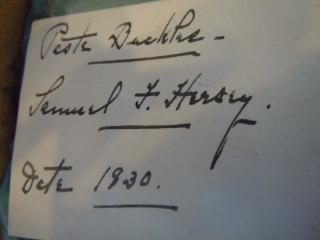 Paste Buckles -
Samuel F. Hersey.
Date 1830.